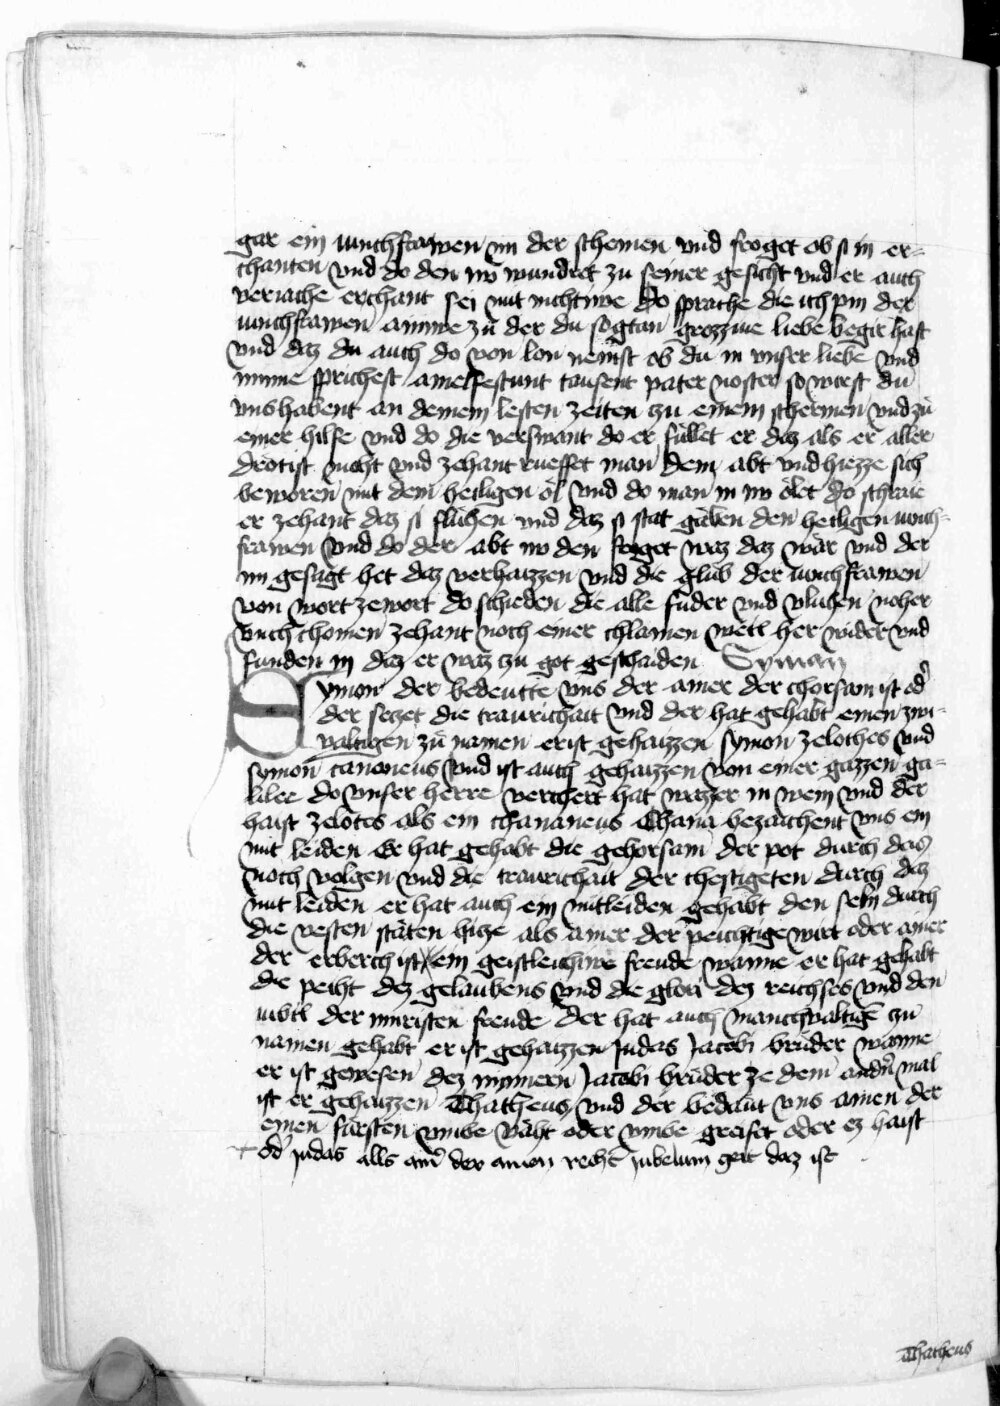 gar ein iunchfrawen im der scheinen vnd froget ob si in er-
chanten vnd do den im wundret zu seiner gesicht vnd er auch
veriache erchant sei mit nichtwe do sprache die ich pin der
iunchfrawen ainiwe zu der du sogtan grozziwe liebe begir hast
vnd daz du auch do von lon nemst ob du in vnser liebe vnd
minne sprichest amelfestunt tausent pater noster so wirst du
vns habent an deinem lesten zeiten zu einem schermen vnd zu
einer hilfe vnd do die verswant do er füllet er daz als er aller
drotist mocht vnd zehant rueffet man dem abt vnd hiezze sich
beworen mit dem heiligen öl vnd do man in im ölet do schraie
er zehant daz si fluhen vnd daz si stat gäben den heiligen iunch-
frawen vnd do der abt im den froget waz daz wär vnd der
im gesagt het daz verhaizzen vnd die glub der iunchfrawen
von wort zewort do schieden die alle fuder vnd vluhen noher
vnd chomen zehant noch einer chlainen weil her wider vnd
funden in daz er waz zu got geschaiden Syman
Symon der bedeutte vns der ainer der chorsam ist od
der seczet die traurichait vnd der hat gehabt einen zwi-
valtigen zu namen er ist gehaizzen symon zelothes vnd
symon cananeus vnd ist auch gehaizzen von einer gazzen ga-
lilee do vnser herre verchert hat wazzer in wein vnd der
haist zelotes als ein chananeus Chana bezaichent vns ein
mit leiden Er hat gehabt die gehorsam der pot durch das
noch volgen vnd die traurichait der chestigeten durch daz
mit leiden er hat auch ein mitleiden gehabt den seln durch
die vesten stäten hicze als ainer der peichtige wirt oder ainer
der erberch ist ein geistleichiwe freude wanne er hat gehabt
die peiht dez gelaubens vnd die glori dez reichses vnd den
iubil der innristen freude der hat auch manchvaltige zu
namen gehabt er ist gehaizzen Judas Jacobi brüder wanne
er ist gewesen dez minnern Jacobi brüder ze dem andn mal
ist er gehaizzen Thatheus vnd der bedaut vns ainen der
einen fürsten vmbe väht oder vmbe greifet oder ez haist
+ od judas alls ainer der ainen recht jubelum geit daz ist
Thatheus